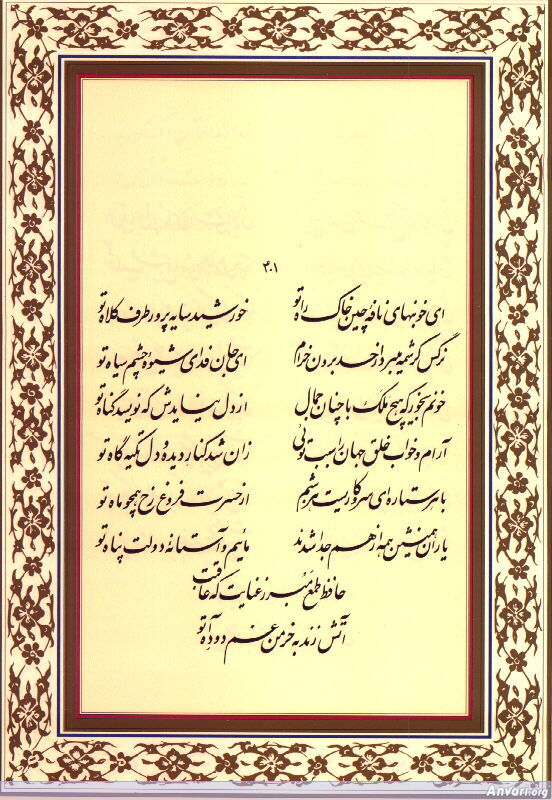 ۴۰۱
ای خونبهای نافه چین خاک راه تو خورشید سایه پرور طرف کلاه تو
نرگس کرشمه میبرد از حد برون خرام ای جان فدای شیوه چشم سیاه تو
خونم بخور که هیچ ملک با چنان جمال از دل نیایدش که نویسد گناه تو
آرام و خواب خلق جهان را سبب توئی زان شد کنار دیده و دل تکیه گاه تو
با هر ستاره ای سر و کاریست هر شبم از حسرت فروغ رخ همچو ماه تو
یاران همنشین همه از هم جدا شدند مائیم و آستانهٔ دولت پناه تو
حافظ طمع مبر ز عنایت که عاقبت
آتش زند به خرمن غم دود آه تو
Anvari.org